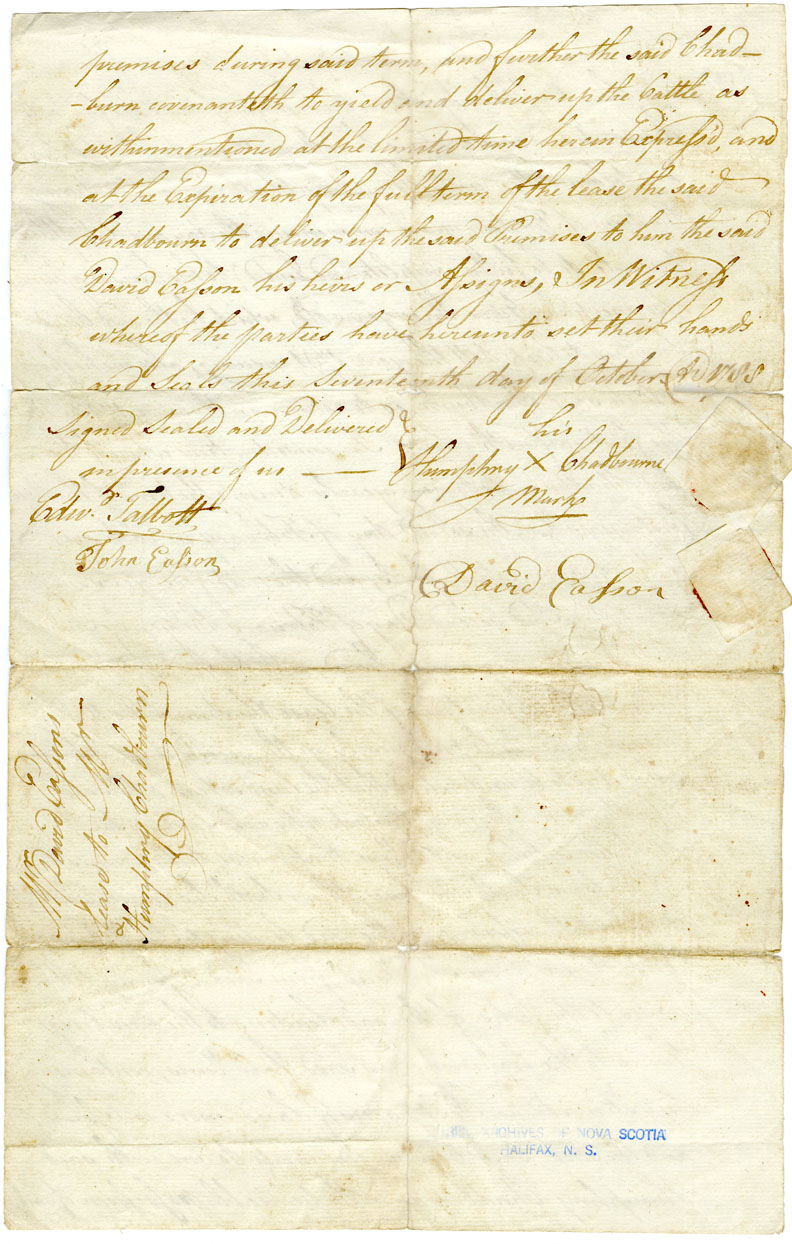 premises during said term, and further the said Chad-
-burn covenanteth to yield and deliver up the Cattle as
within mentioned at the limited time herein Express'd, and
at the Expiration of the full term of the lease the said
Chadbourn to deliver up the said Premises to him the said
David Easson his heirs or Assigns, & In Witness
whereof the parties have hereunto set their hands
and Seals this Seventeenth day of October AD 1788
Signed Sealed and Delivered
in presence of us
Edwd. Talbott
John Easson
his
Humphry X Chadbourne
Mark
David Easson
Mr David Eassons
Lease to Mr
Humphry Chadbourn
ARCHIVES OF NOVA SCOTIA
HALIFAX, N. S.